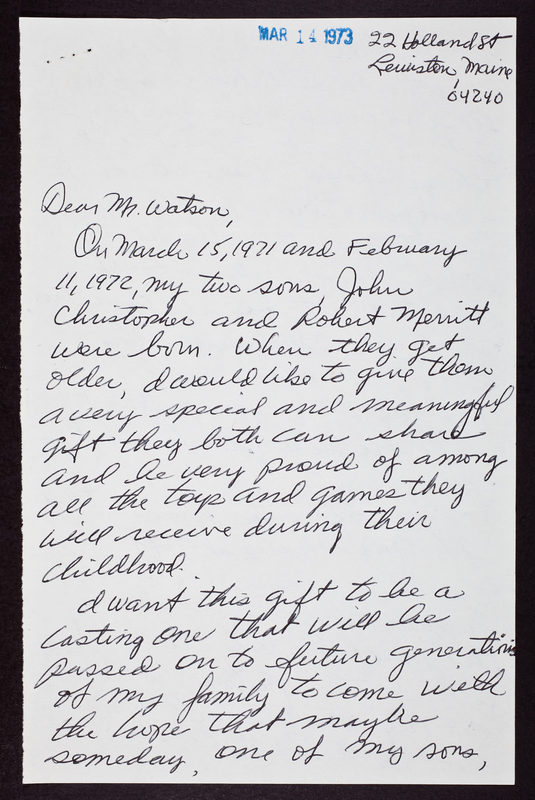 MAR 14 1973
22 Holland St
Lewiston, Maine
04240
Dear Mr. Watson,
On March 15, 1971 and February
11, 1972, my two sons, John
Christopher and Robert Merritt
were born. When they get
older, I would like to give them
a very special and meaningful
gift they both can share
and be very proud of among
all the toys and games they
will receive during their
childhood.
I want this gift to be a
lasting one that will be
passed on to future generations
of my family to come with
the hope that maybe
someday, one of my sons,